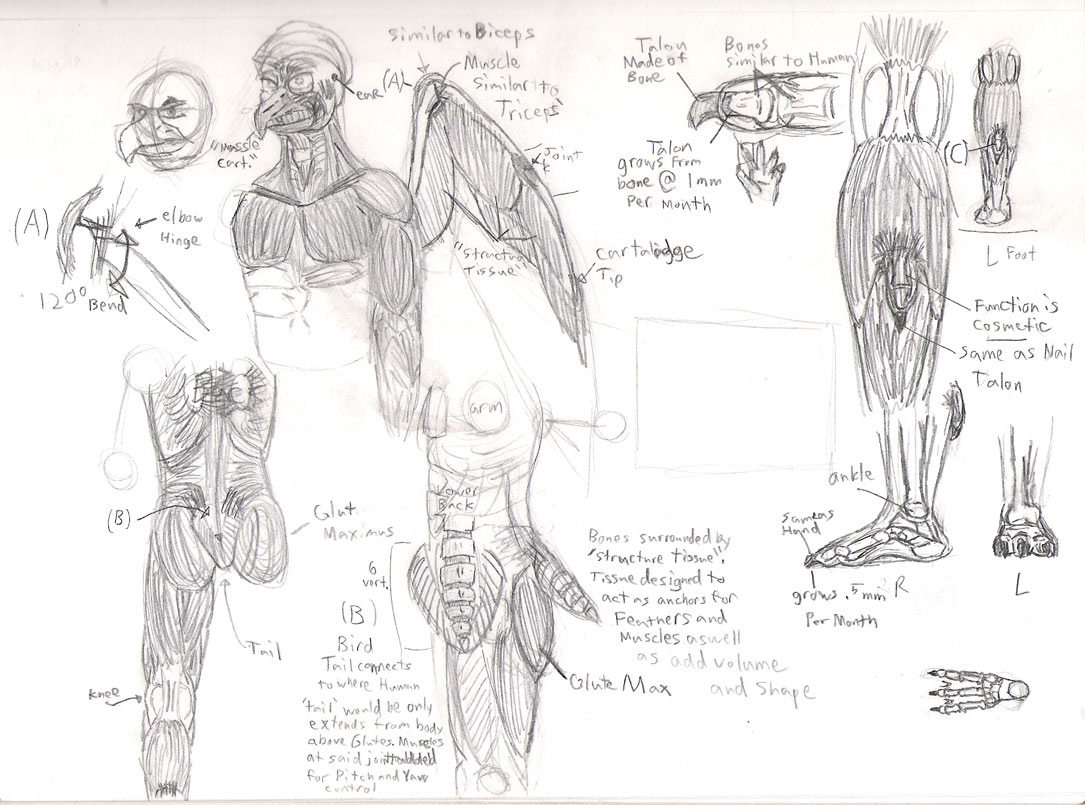 Similar to Biceps
(A)
Muscle
Similar to
Triceps
ear
"Mussle
Cart."
Joint
"Structure
Tissue"
cartaloidge
Tip
(A)
elbow
Hinge
120° Bend
Talon
Made of
Bone
Bones
similar to Human
Talon
grows from
bone @ 1mm
Per Month
(C)
L Foot
Function is
Cosmetic
same as Nail
Talon
ankle
sameas
Hand
grows .5mm
Per Month
R
L
Back
(B)
Glut
Maximus
Tail
knee
arm
Lower
Back
6
vert.
(B)
Bird
Tail connects
to where Human
'tail' would be only
extends from body
above Glutes. Muscles
at said joint added
for Pitch and Yaw
control.
Glute Max
Bones surrounded by
"structure tissue".
Tissue designed to
act as anchors for
Feathers and
Muscles aswell
as add volume
and shape